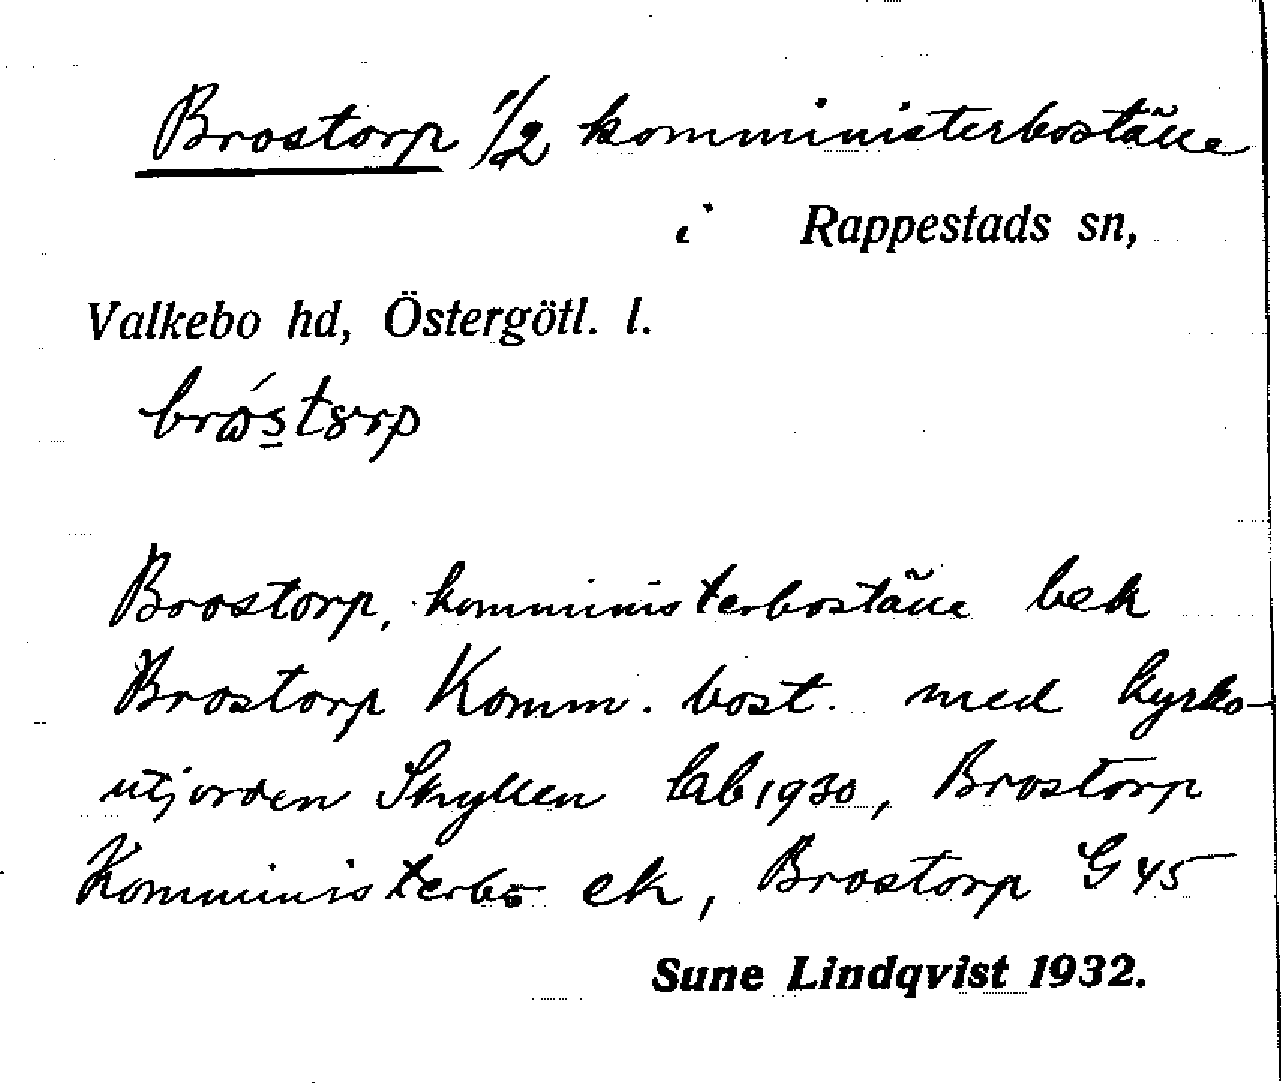 Brostorp 1/2 komministerboställe
i Rappestads sn,
Valkebo hd, Östergötl. l.
Brostorp, komministerboställe bek
Brostorp Komm. bost. med kyrko-
utjorden Skyllen Låb 1930, Brostorp
Komministerbo ek, Brostorp G 45
Sune Lindqvist 1932.